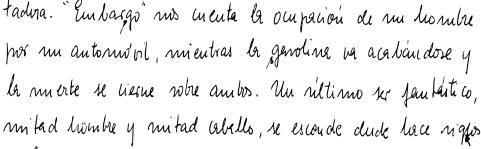 tadora. "Embargo" nos cuenta la ocupación de un hombre
por un automóvil, mientras la gasolina va acabándose y
la muerte se cierne sobre ambos. Un último ser fantástico,
mitad hombre y mitad caballo, se esconde desde hace siglos